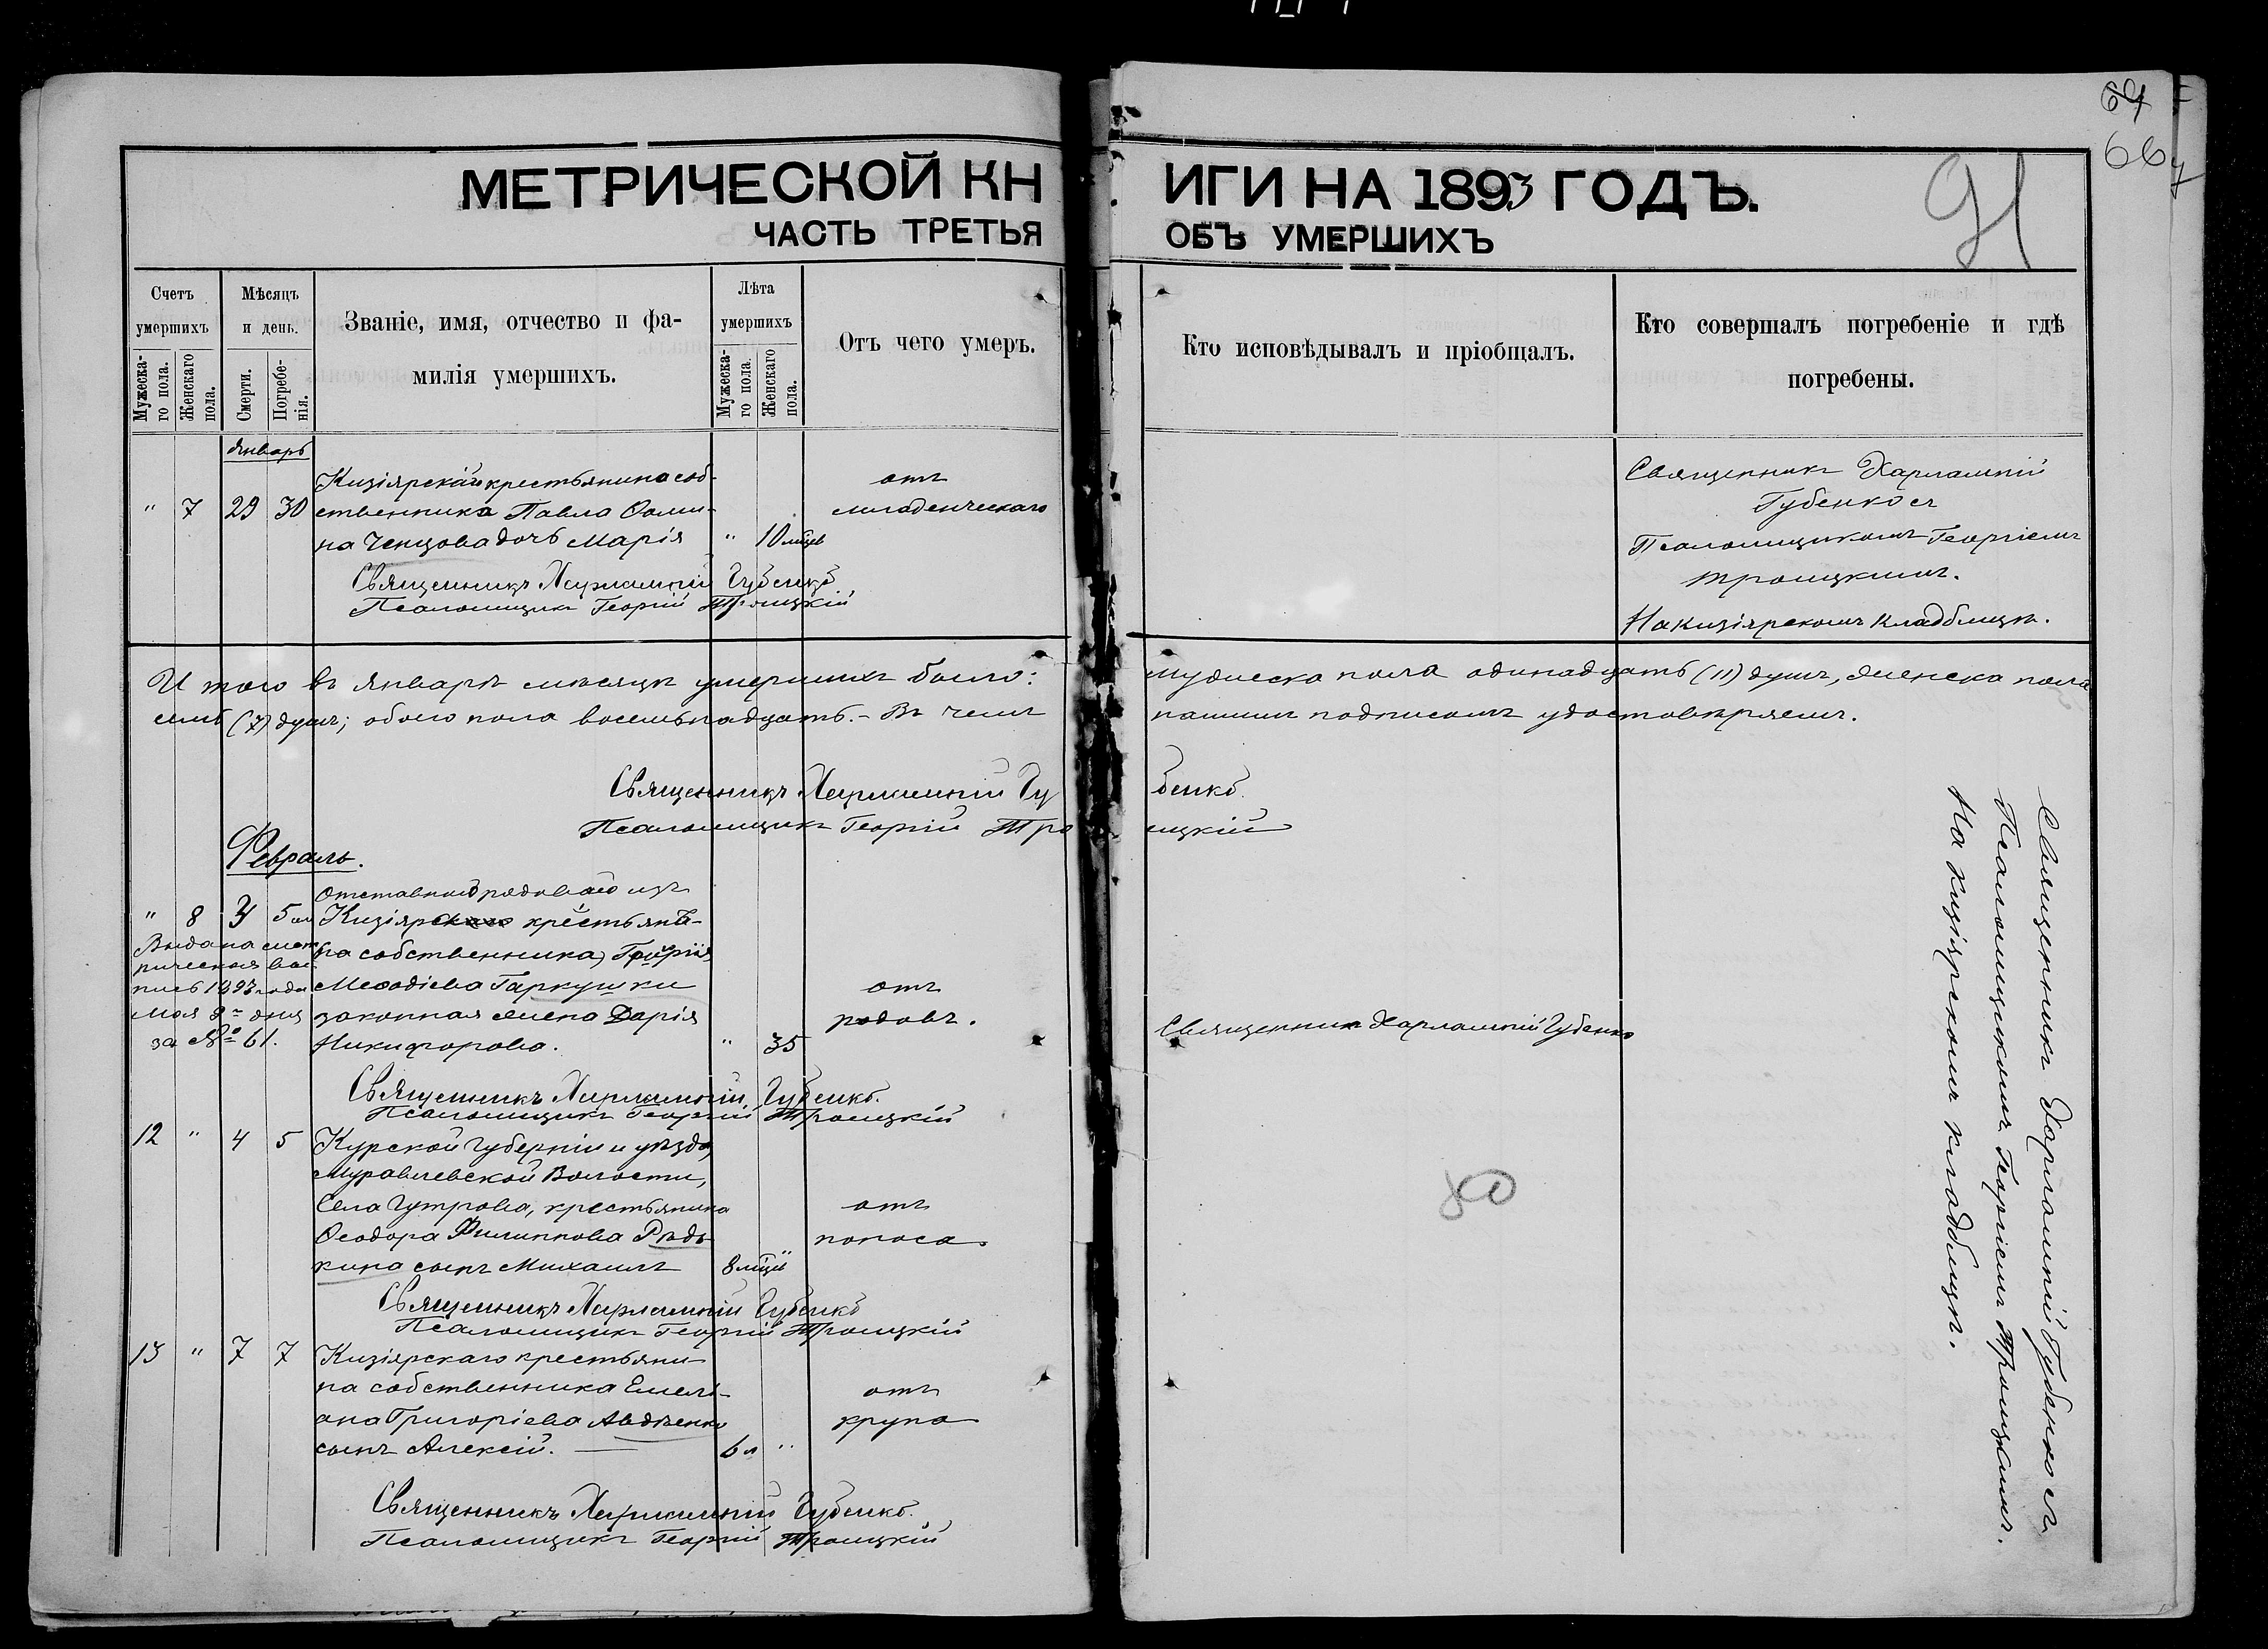 69
66
91
МЕТРИЧЕСКОЙ КНИГИ НА 1893 ГОДЪ.
ЧАСТЬ ТРЕТЬЯ ОБЪ УМЕРШИХЪ
Счетъ умершихъ
Мужеска-го пола.
Женскаго пола.
Мѣсяцъ и день.
Смерти.
Погребе-нія.
Званіе, имя, отчество и фа-
милія умершихъ.
Лѣта умершихъ
Мужеска-го пола.
Женскаго пола.
Отъ чего умеръ.
Кто исповѣдывалъ и пріобщалъ.
Кто совершалъ погребеніе и гдѣ
погребены.
Январь
Кизіярскаго крестьянина соб-
" 7 29 30 ственника Павла Ѳоми-
на Ченцова дочь Марія " 10 мѣсц
отъ
младенческаго
Священникъ Харлампій
Губенко съ
Псаломщикомъ Георгіемъ
Троицкимъ.
На кизіярскомъ кладбищѣ.
Священникъ Харлампій Губенко
Псаломщикъ Георгій Троицкій
Итого въ Январѣ мѣсяцѣ умершихъ было: мужеска пола одинадцать (11) душъ, женска пола
семь (7) душъ; обоего пола восемьнадцать. - Въ чемъ нашимъ подписомъ удостовѣряемъ.
Священникъ Харлампій Губенко.
Псаломщикъ Георгій Троицкій
Февраль.
Отставного рядового изъ
" 8 5 Кизіяр крестьянъ
на собственника,
Меѳодіева Гаркушки
законная жена Дарія
Никифорова. " 35
Выдана мет
рическая вы
пись 1897 года
мая 8 дня
за № 61.
отъ
родовъ.
Священникъ Харлампій Губенко
Священникъ Харлампій Губенко.
Псаломщикъ Георгій Троицкій
12 " 4 5 Курской Губерніи и уѣзда,
Муравлевской Волости,
Села Гутрова, крестьянина
Ѳеодора Филиппова Рядь
кина сынъ Михаилъ 8 мѣсц "
отъ
поноса
Священникъ Харлампій Губенко
Псаломщикъ Георгій Троицкій
13 " 7 7 Кизіярскаго крестьяни-
на собственника Емелі-
ана Григоріева Авдѣенко
сынъ Алексій. 6 л "
отъ
крупа
Священникъ Харлампій Губенко.
Псаломщикъ Георгій Троицкій
Священникъ Харлампій Губенко съ
Псаломщикомъ Георгіемъ Троицкимъ.
На кизіярскомъ кладбищѣ.